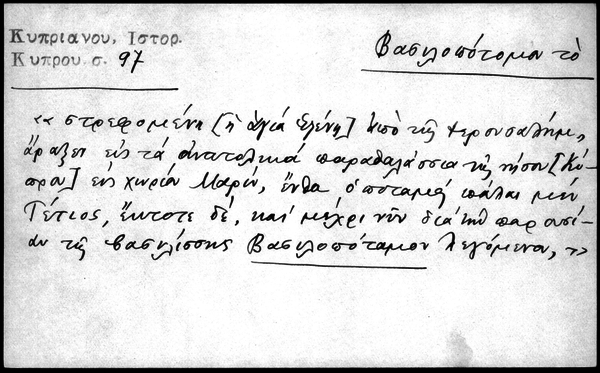 Κυπριανου, Ιστορ.
Κυπρου σ. 97
Βασιλοπόταμον τὸ
«στρεφομένη [ἡ ἁγία Ἑλένη] ἀπὸ τῆς Ἱερουσαλήμ,
ἄραξεν εἰς τὰ ἀνατολικὰ παραθαλάσσια τῆς νήσου [Κύ
πρου] εἰς χωρίον Μαρίν, ἔνθα ὁ ποταμὸς πάλαι μὲν
Τέτιος, ἔκτοτε δέ, καὶ μέχρι νῦν διὰ τὴν παρουσί-
αν τῆς βασιλίσσης Βασιλοπόταμον λεγόμενα,»